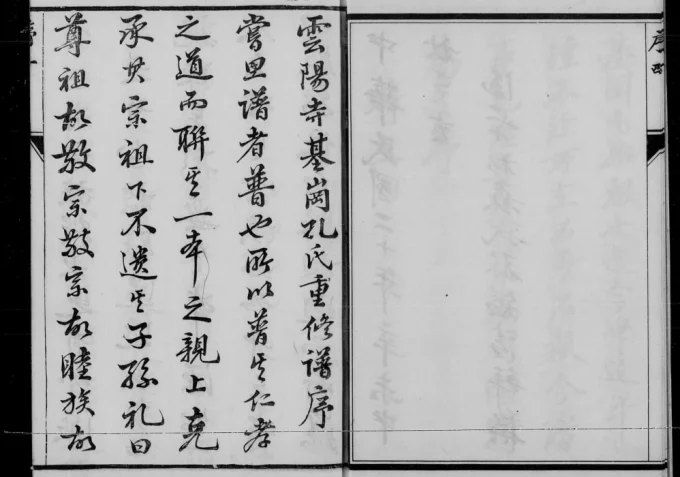 雲陽寺基崗孔氏重修譜序
嘗思譜者普也所以普其仁孝
之道而聯其一本之親上克
承其宗祖下不遺其子孫礼曰
尊祖故敬宗敬宗故睦族故